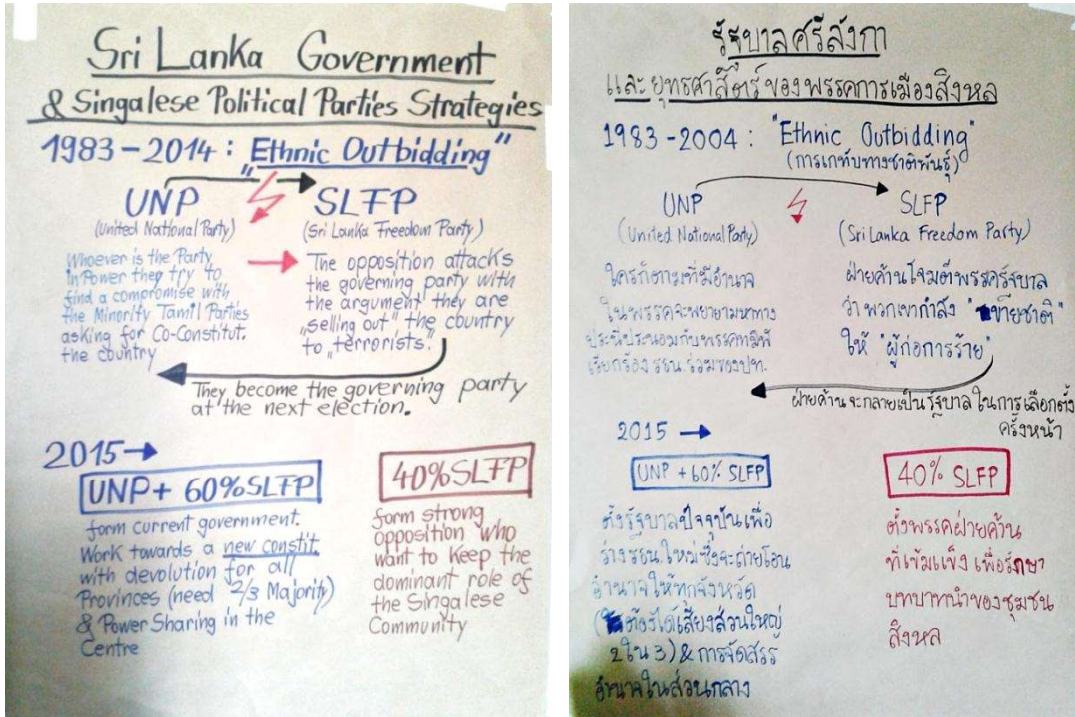 Sri Lanka Government
& Singalese Political Parties Strategies
1983-2014: "Ethnic Outbidding"
UNP
(United National Party)
Whoever is the Party
in Power they try to
find a compromise with
the Minority Tamil Parties
asking for Co-Constitut.
the country
SLFP
(Sri Lanka Freedom Party)
The opposition attacks
the governing party with
the argument they are
„selling out" the country
to „terrorists."
They become the governing party
at the next election.
2015→
UNP + 60% SLFP
form current government.
Work towards a new constit.
with devolution for all
Provinces (need 2/3 Majority)
& Power Sharing in the
Centre
40% SLFP
form strong
opposition who
want to keep the
dominant role of
the Singalese
Community
รัฐบาลศรีลังกา
และ ยุทธศาสตร์ของพรรคการเมืองสิงหล
1983-2004: "Ethnic Outbidding"
(การเกทับทางชาติพันธุ์)
UNP
(United National Party)
ใครก็ตามที่มีอำนาจ
ในพรรคจะพยายามหาทาง
ประนีประนอมกับพรรคทมิฬ
เรียกร้อง รธน. ร่วมของปท.
SLFP
(Sri Lanka Freedom Party)
ฝ่ายค้านโจมตีพรรครัฐบาล
ว่าพวกเขากำลัง "ขายชาติ"
ให้ "ผู้ก่อการร้าย"
ฝ่ายค้านจะกลายเป็นรัฐบาลในการเลือกตั้ง
ครั้งหน้า
2015 →
UNP + 60% SLFP
ตั้งรัฐบาลปัจจุบันเพื่อ
ร่างรธน.ใหม่ซึ่งจะถ่ายโอน
อำนาจให้ทุกจังหวัด
(ต้องได้เสียงส่วนใหญ่
2 ใน 3) & การจัดสรร
อำนาจในส่วนกลาง
40% SLFP
ตั้งพรรคฝ่ายค้าน
ที่เข้มแข็ง เพื่อรักษา
บทบาทนำของชุมชน
สิงหล